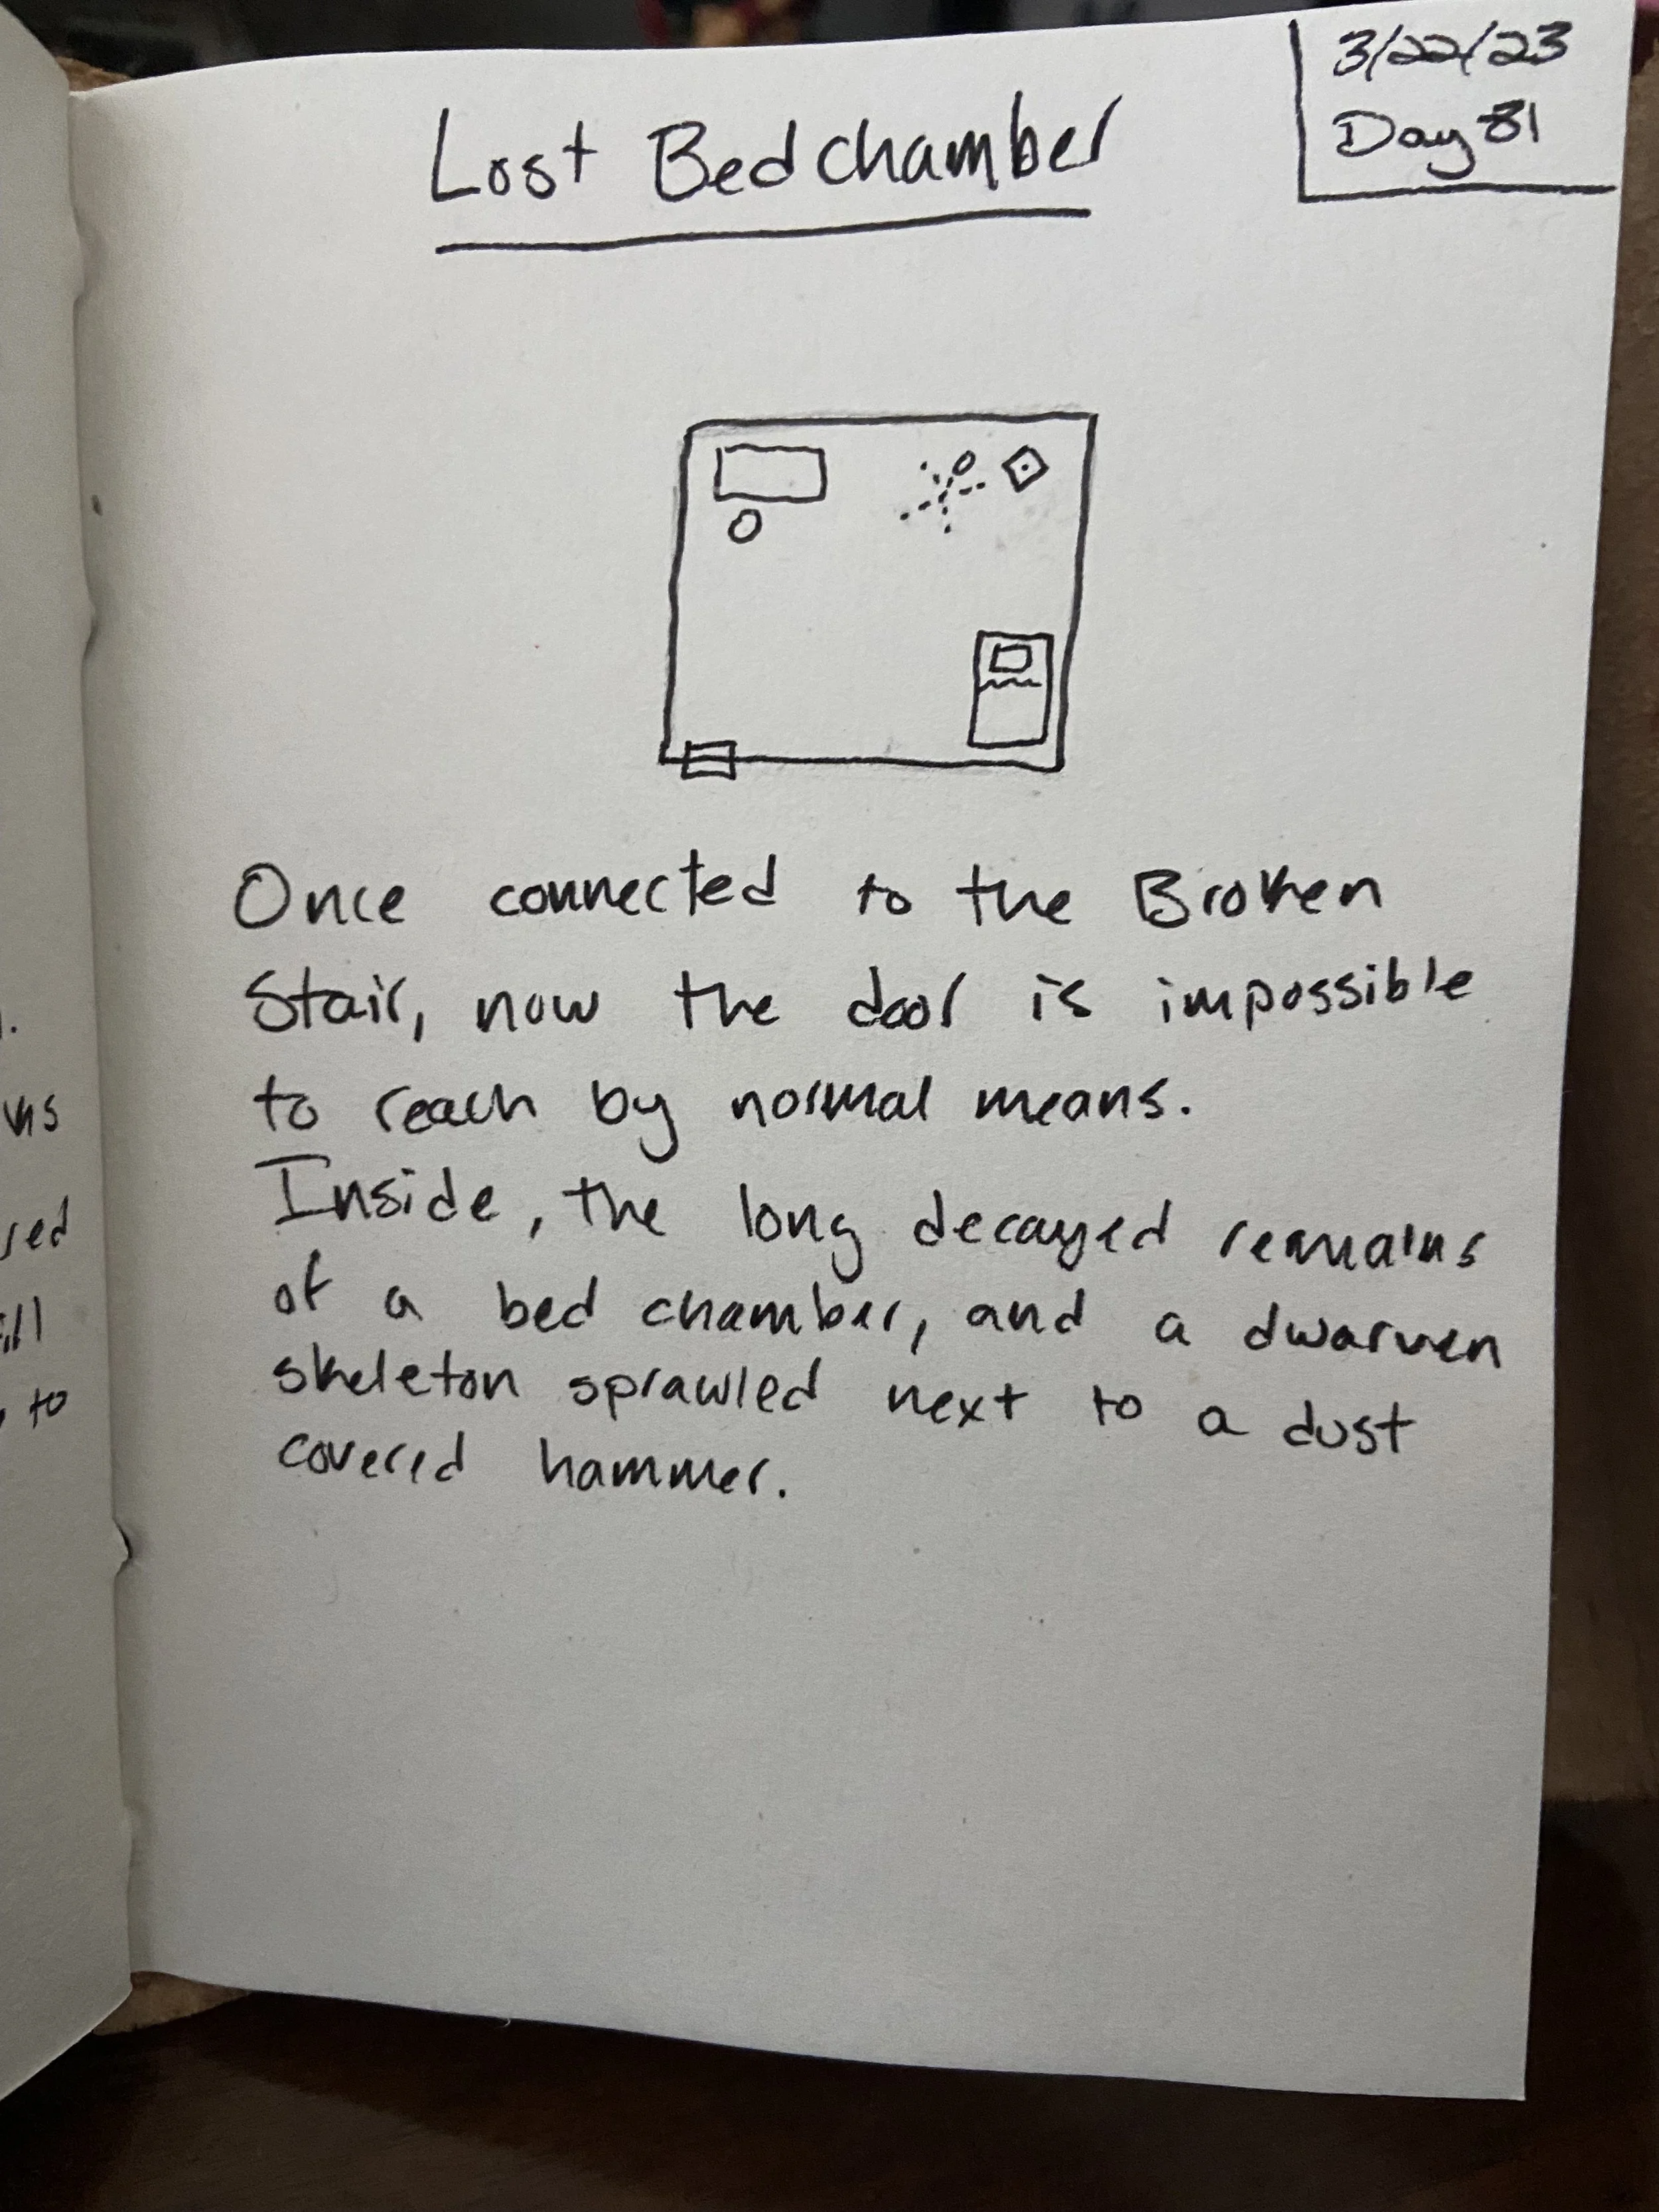 3/22/23
Day 81
Lost Bedchamber
Once connected to the Broken
Stair, now the door is impossible
to reach by normal means.
Inside, the long decayed remains
of a bed chamber, and a dwarven
skeleton sprawled next to a dust
covered hammer.
to